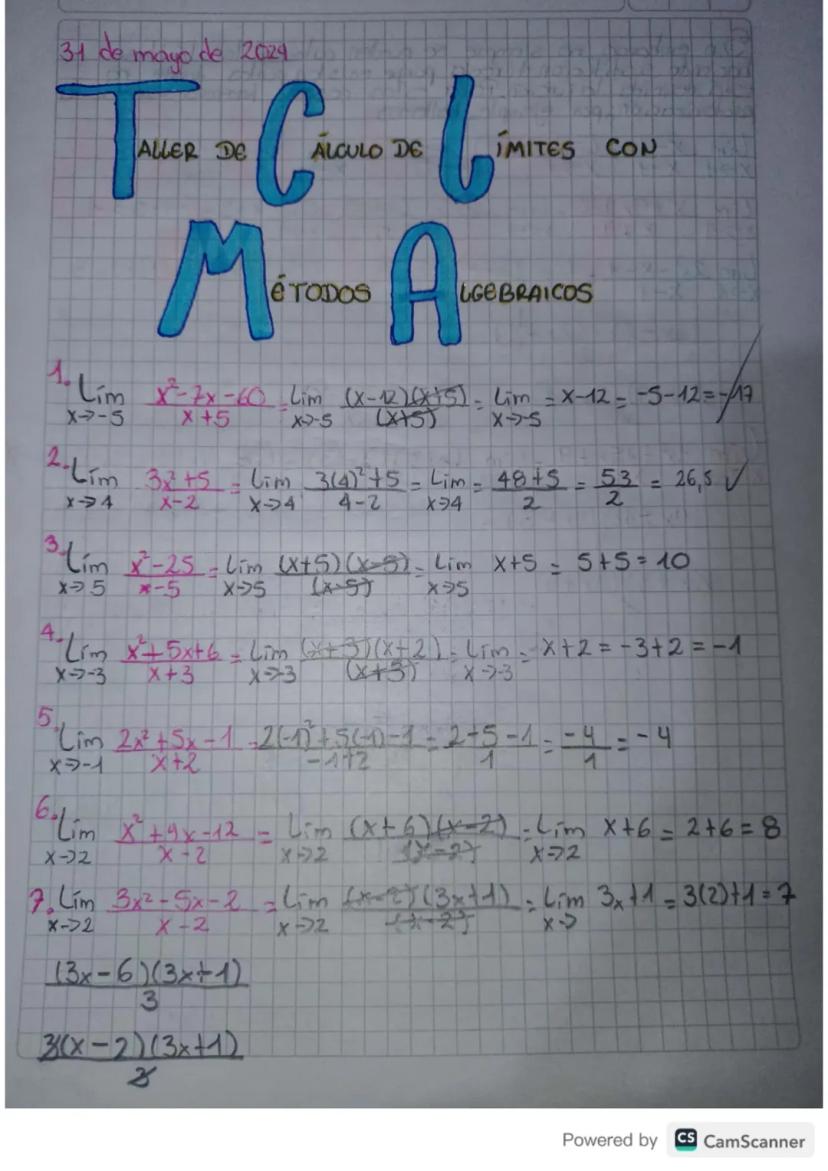 31 de mayo de 2024
TALLER DE CÁLCULO DE LÍMITES CON
MÉTODOS ALGEBRAICOS
1. Lím x→-5 (x²-7x-60)/(x+5) = Lím x→-5 ((x-12)(x+5))/(x+5) = Lím x→-5 = x-12 = -5-12 = -17
2. Lím x→4 (3x²+5)/(x-2) = Lím x→4 (3(4)²+5)/(4-2) = Lím x→4 = (48+5)/2 = 53/2 = 26,5 ✓
3. Lím x→5 (x²-25)/(x-5) = Lím x→5 ((x+5)(x-5))/(x-5) = Lím x→5 x+5 = 5+5 = 10
4. Lím x→-3 (x²+5x+6)/(x+3) = Lím x→-3 ((x+3)(x+2))/(x+3) = Lím x→-3 = x+2 = -3+2 = -1
5. Lím x→-1 (2x²+5x-1)/(x+2) = (2(-1)²+5(-1)-1)/(-1+2) = (2+5-1)/1 = -4/1 = -4
6. Lím x→2 (x²+4x-12)/(x-2) = Lím x→2 ((x+6)(x-2))/(x-2) = Lím x→2 x+6 = 2+6 = 8
7. Lím x→2 (3x²-5x-2)/(x-2) = Lím x→2 ((x-2)(3x+1))/(x-2) = Lím x→ 3x+1 = 3(2)+1 = 7
((3x-6)(3x+1))/3
(3(x-2)(3x+1))/3
Powered by CS CamScanner